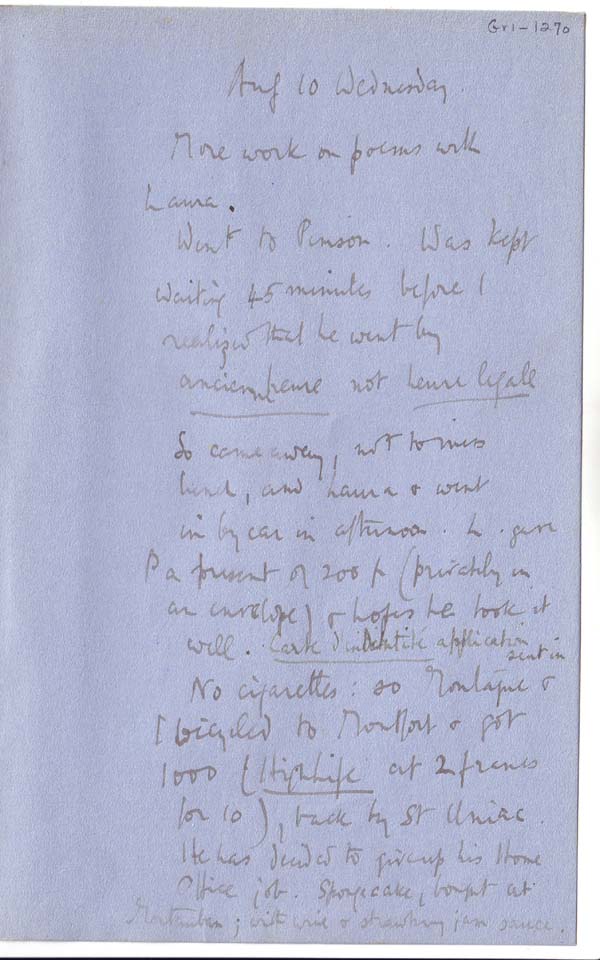 Gr1-1270
Aug 10 Wednesday.
More work on poems with
Laura.
Went to Pinson. Was kept
waiting 45 minutes before I
realized that he went by
ancien heure not heure legale
So came away, not to miss
lunch, and Laura & went
in by car in afternoon. L. gave
P a present of 200 fr (privately in
an envelope) & hopes he took it
well. Carte d'identité application
sent in
No cigarettes: so Montague &
I bicycled to Montfort & got
1000 (Highlife at 2 francs
for 10), back by St Uniac.
He has decided to give up his Home
Office job. Spongecake, bought at
Montauban; with wine & strawberry jam sauce.